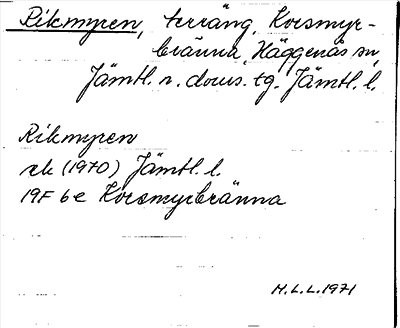 Rikmyren, terräng, Korsmyr-
bränna, Häggenås sn,
Jämtl. n. doms. tg. Jämtl. l.
Rikmyren
rek (1970) Jämtl. l.
19F 6e Korsmyrbränna
H.L.L. 1971